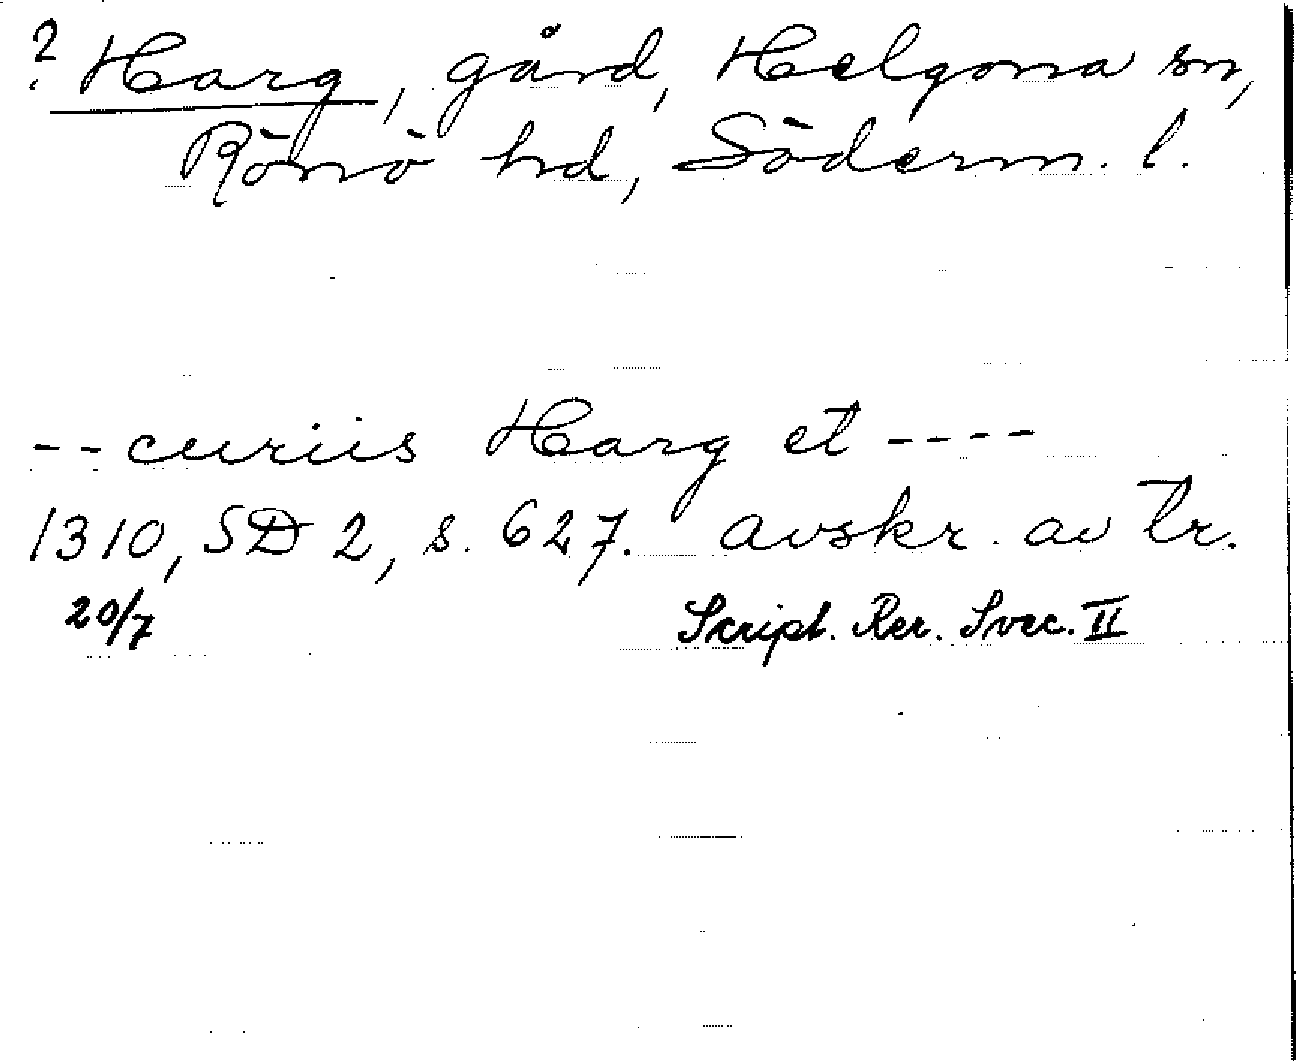 ? Harg, gård, Helgona sn,
Rönö hd, Söderm. l.
-- curiis Harg et ----
1310, SD 2, s. 627. avskr. av tr.
20/7 Script. Rer. Svec. II